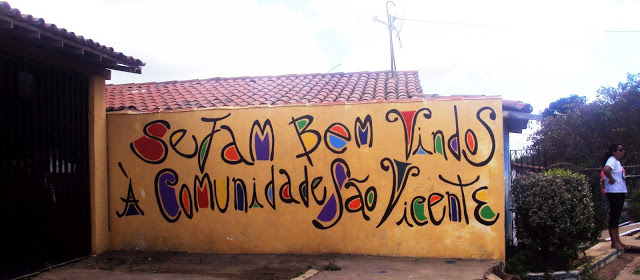 Sejam Bem Vindos
À Comunidade São Vicente